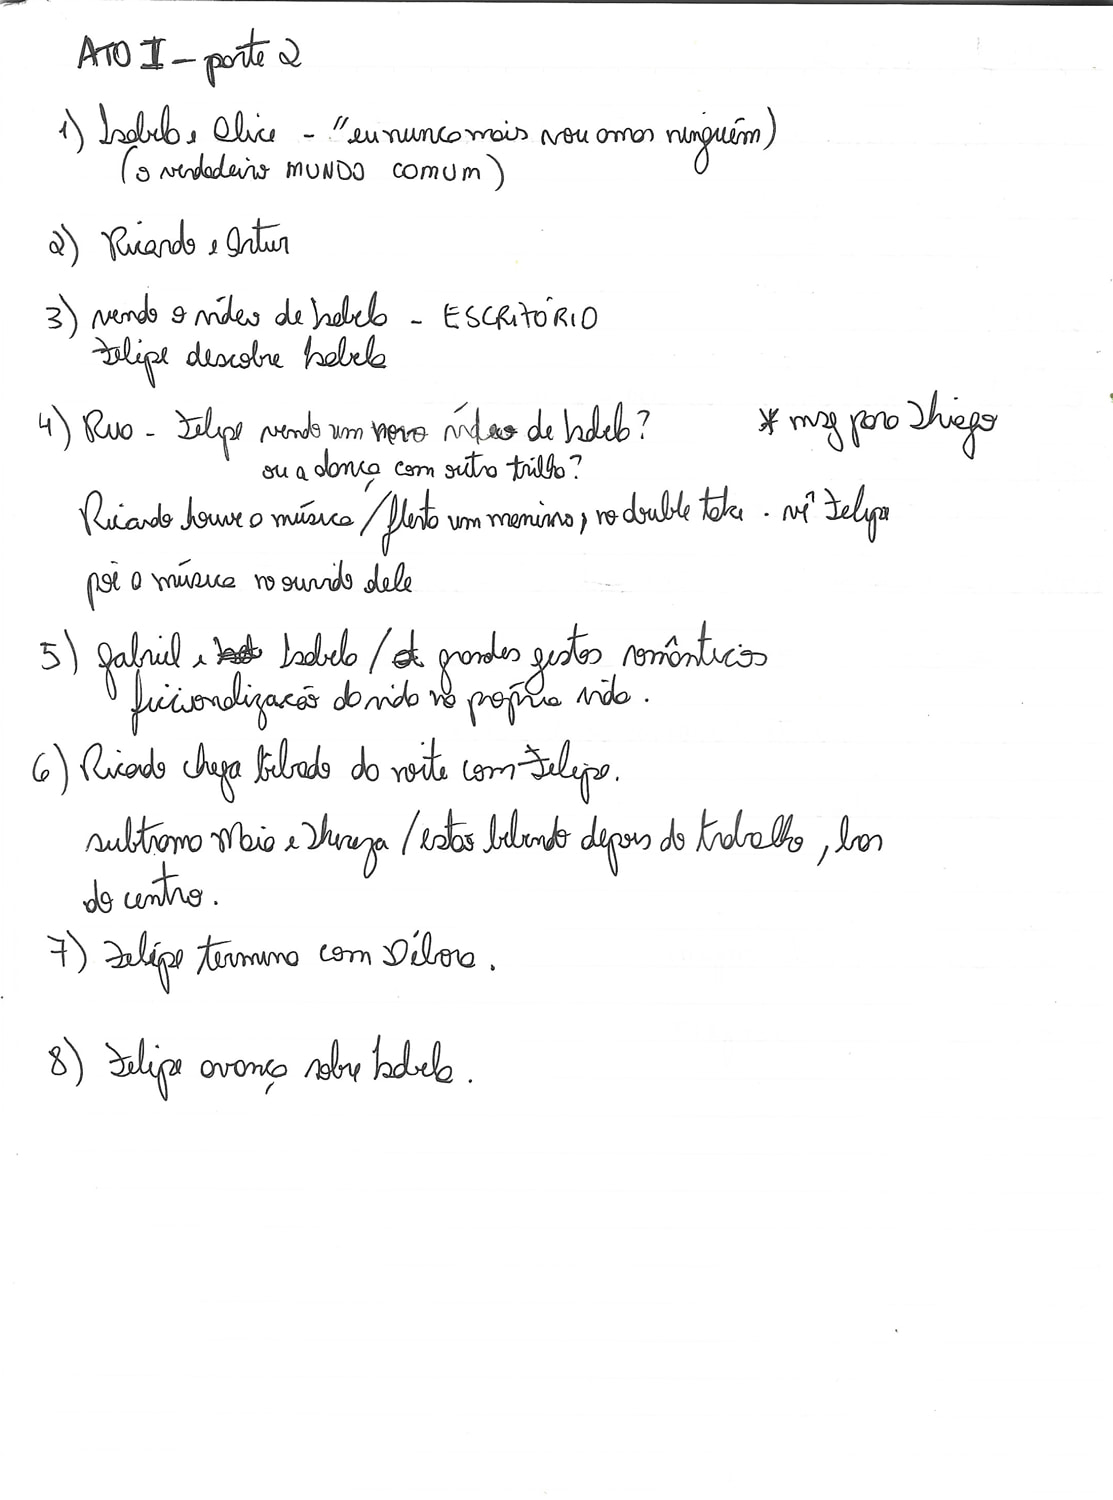 ATO I - parte 2
1) Isabela e Alice - "eu nunca mais vou amar ninguém)
(o verdadeiro MUNDO COMUM)
2) Ricardo e Artur
3) vendo o vídeo de Isabela - ESCRITÓRIO
Felipe descobre Isabela
4) Rua - Felipe vendo um novo vídeo de Isabela?
* msg para Thiago
ou a dança com outra trilha?
Ricardo houve a música / flerta um menino, no double take. vê Felipe
põe a música no ouvido dele
5) Gabriel e Isabela / grandes gestos românticos
ficcionalização da vida na própria vida.
6) Ricardo chega bêbado da noite com Felipe.
subtrama Maia e Thereza / estão bebendo depois do trabalho, bar
do centro.
7) Felipe termina com Débora.
8) Felipe avança sobre Isabela.